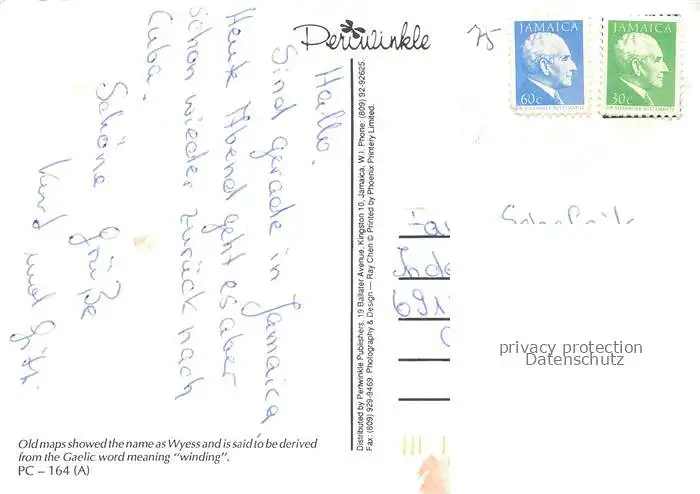 Periwinkle
75
JAMAICA
60c
SIR ALEXANDER BUSTAMANTE
JAMAICA
30c
SIR ALEXANDER BUSTAMANTE
Hallo.
Sind gerade in Jamaica,
Heute Abend geht es aber
schon wieder zurück nach
Cuba.
Schöne Grüße
Kurt und Gitti
Distributed by Periwinkle Publishers, 19 Ballater Avenue, Kingston 10, Jamaica, W.I. Phone: (809) 92-92625.
Fax: (809) 929-9469. Photography & Design — Ray Chen © Printed by Phoenix Printery Limited.
privacy protection
Datenschutz
Old maps showed the name as Wyess and is said to be derived
from the Gaelic word meaning "winding".
PC – 164 (A)